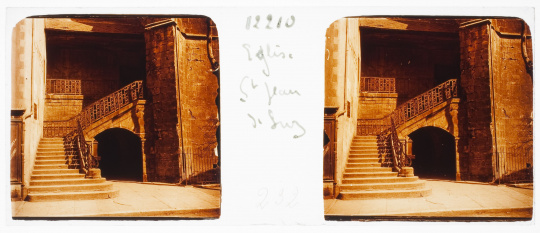 12210
Eglise
St Jean
de Luz